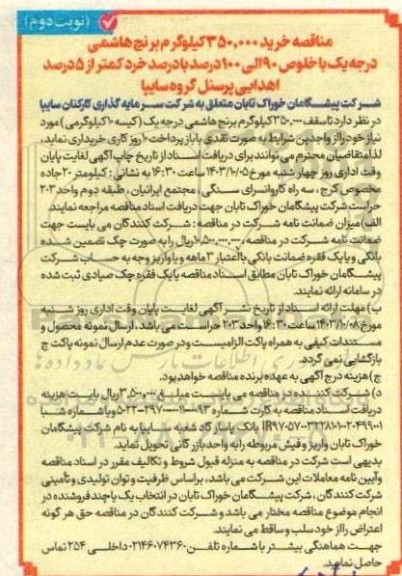 (نوبت دوم)
مناقصه خرید ۳۵۰,۰۰۰ کیلوگرم برنج هاشمی
درجه یک با خلوص ۹۰ الی ۱۰۰ درصد با درصد خرد کمتر از ۵ درصد
اهدایی پرسنل گروه سایپا
شرکت پیشگامان خوراک تابان متعلق به شرکت سرمایه گذاری کارکنان سایپا
در نظر دارد تا سقف ۳۵۰.۰۰۰ کیلوگرم برنج هاشمی درجه یک (کیسه ۱۰ کیلوگرمی) مورد
نیاز خود را از واجدین شرایط به صورت نقدی با باز پرداخت ۱۰ روز کاری خریداری نماید،
لذا متقاضیان محترم می توانند برای دریافت اسناد از تاریخ چاپ آگهی لغایت پایان
وقت اداری روز چهار شنبه مورخ ۱۴۰۳/۱۰/۰۵ ساعت ۱۶:۳۰ به نشانی : کیلومتر ۲۰ جاده
مخصوص کرج ، سه راه کاروانسرای سنگی ، مجتمع ایرانیان ، طبقه دوم واحد ۲۰۳
حراست شرکت پیشگامان خوراک تابان جهت دریافت اسناد مناقصه مراجعه نمایند.
الف) میزان ضمانت نامه شرکت در مناقصه : شرکت کنندگان می بایست جهت
ضمانت نامه شرکت در مناقصه ، ریال را به صورت چک تضمین شده
بانکی و یا یک فقره ضمانت بانکی با اعتبار ۳ ماهه و یا واریز وجه به حساب شرکت
پیشگامان خوراک تابان مطابق اسناد مناقصه یا یک فقره چک صیادی ثبت شده
در سامانه ارائه نمایند.
ب) مهلت ارائه اسناد از تاریخ نشر آگهی لغایت پایان وقت اداری روز شنبه
مورخ ۱۴۰۳/۱۰/۰۸ ساعت ۱۶:۳۰ واحد ۲۰۳ حراست می باشد . ارسال نمونه محصول و
مستندات کیفی به همراه پاکت الزامیست و در صورت عدم ارسال نمونه پاکت ج
بازگشایی نمی گردد.
ج) هزینه درج آگهی به عهده برنده مناقصه خواهد بود.
د) شرکت کننده در مناقصه می بایست مبلغ ریال بابت هزینه
دریافت اسناد مناقصه به کارت شماره و یا شماره شبا
بانک پاسارگاد شعبه سایپا به نام شرکت پیشگامان
خوراک تابان واریز و فیش مربوطه را به واحد بازرگانی تحویل نماید.
بدیهی است شرکت در مناقصه به منزله قبول شروط و تکالیف مقرر در اسناد مناقصه
و آیین نامه معاملات این شرکت می باشد، براساس ظرفیت و توان تولیدی و تأمینی
شرکت کنندگان ، شرکت پیشگامان خوراک تابان در انتخاب یک یا چند فروشنده در
انجام موضوع مناقصه مختار می باشد و شرکت کنندگان در مناقصه حق هر گونه
اعتراض را از خود سلب و ساقط می نمایند.
جهت هماهنگی بیشتر با شماره تلفن ۰۲۱۴۶۰۷۴۳۶۰ داخلی ۲۵۴ تماس
حاصل نمایید.